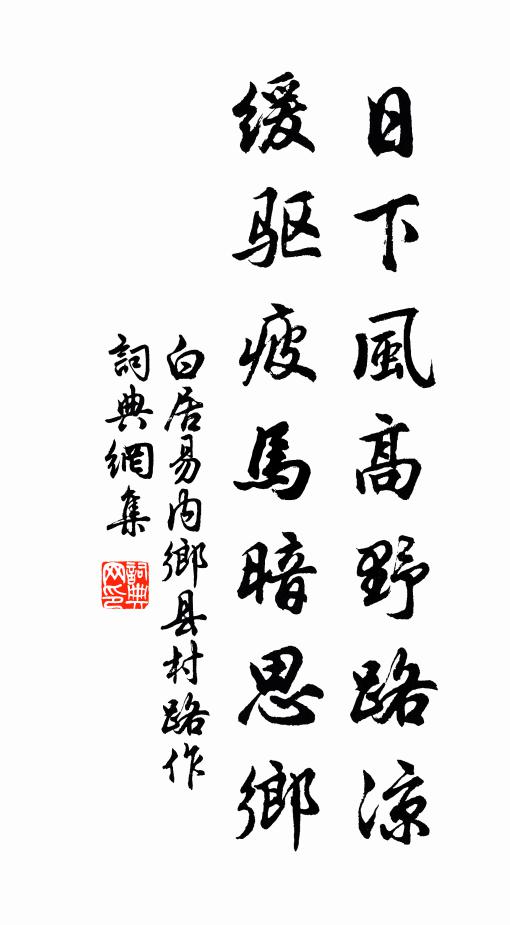 日下風高野路涼
缓驱疲馬暗思鄉
白居易内鄉县村路作
詞典網集
詞典网印